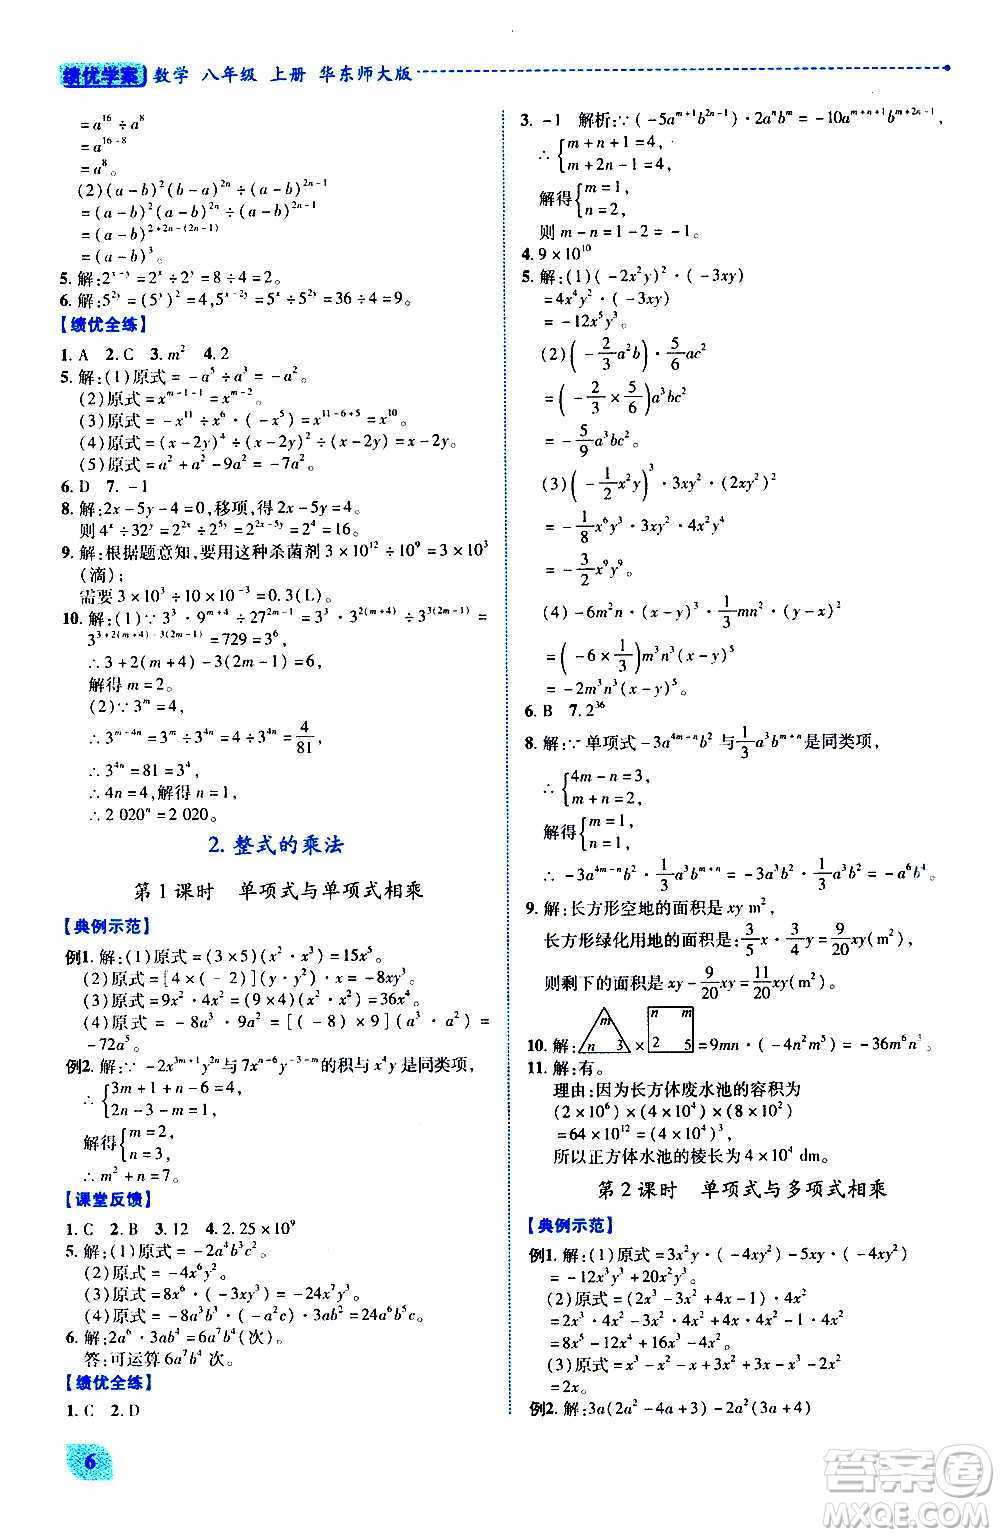 绩优学案 数学 八年级 上册 华东师大版
=a^16÷a^8
=a^(16-8)
=a^8。
(2)(a-b)^2(b-a)^(2n)÷(a-b)^(2n-1)
=(a-b)^2(a-b)^(2n)÷(a-b)^(2n-1)
=(a-b)^(2+2n-(2n-1))
=(a-b)^3。
5.解:2^(x-y)=2^x÷2^y=8÷4=2。
6.解:5^(2y)=(5^y)^2=4,5^(x-2y)=5^x÷5^(2y)=36÷4=9。
【绩优全练】
1.A 2.C 3.m^2 4.2
5.解:(1)原式=-a^5÷a^3=-a^2。
(2)原式=x^(m-1-1)=x^(m-2)。
(3)原式=-x^11÷x^6·(-x^5)=x^(11-6+5)=x^10。
(4)原式=(x-2y)^4÷(x-2y)^3÷(x-2y)=1。
(5)原式=a^2+a^2-9a^2=-7a^2。
6.D 7.-1
8.解:2x-5y-4=0,移项,得2x-5y=4。
则4^x÷32^y=2^(2x)÷2^(5y)=2^(2x-5y)=2^4=16。
9.解:根据题意知,要用这种杀菌剂3×10^12÷10^9=3×10^3
(滴);
需要3×10^3÷10×10^(-3)=0.3(L)。
10.解:(1)∵3^3·9^(m+4)÷27^(2m-1)=3^3·3^(2(m+4))÷3^(3(2m-1))=
3^(3+2(m+4)-3(2m-1))=729=3^6,
∴3+2(m+4)-3(2m-1)=6,
解得m=2。
(2)∵3^m=4,
∴3^(m-4n)=3^m÷3^(4n)=4÷3^(4n)=4/81,
∴3^(4n)=81=3^4,
∴4n=4,解得n=1,
∴2 020^n=2 020。
2.整式的乘法
第1课时 单项式与单项式相乘
【典例示范】
例1.解:(1)原式=(3×5)(x^2·x^3)=15x^5。
(2)原式=[4×(-2)](y·y^2)·x=-8xy^3。
(3)原式=9x^2·4x^2=(9×4)(x^2·x^2)=36x^4。
(4)原式=-8a^3·9a^2=[(-8)×9](a^3·a^2)=
-72a^5。
例2.解:∵-2x^(3m+1)y^(2n)与7x^(n-6)y^(-3-m)的积与x^4y是同类项,
∴{3m+1+n-6=4
2n-3-m=1,
解得{m=2,
n=3,
∴m^2+n=7。
【课堂反馈】
1.C 2.B 3.12 4.2.25×10^9
5.解:(1)原式=-2a^4b^3c^2。
(2)原式=-4x^6y^2。
(3)原式=8x^6·(-3xy^3)=-24x^7y^3。
(4)原式=-8a^3b^3·(-a^2c)·3ab^2=24a^6b^5c。
6.解:2a^6·3a=6a^7(次)。
答:可运算6a^7次。
【绩优全练】
1.C 2.D
6
3.-1 解析:∵(-5a^(m+1)b^(2n-1))·2a^nb^m=-10a^(m+n+1)b^(m+2n-1),
∴{m+n+1=4,
m+2n-1=4,
解得{m=1,
n=2,
则m-n=1-2=-1。
4.9×10^10
5.解:(1)(-2x^2y)^2·(-3xy)
=4x^4y^2·(-3xy)
=-12x^5y^3。
(2)(-2/3a^2b)·5/6ac^2
=(-2/3×5/6)a^3bc^2
=-5/9a^3bc^2。
(3)(-1/2x^2y)^3·3xy^2·(2xy^2)^2
=-1/8x^6y^3·3xy^2·4x^2y^4
=-3/2x^9y^9。
(4)-6m^2n·(x-y)^3·1/3mn^2·(y-x)^2
=(-6×1/3)m^3n^3(x-y)^5
=-2m^3n^3(x-y)^5。
6.B 7.2^36
8.解:∵单项式-3a^(4m-n)b^2与1/3a^3b^(m+n)是同类项,
∴{4m-n=3,
m+n=2,
解得{m=1,
n=1,
∴-3a^(4m-n)b^2·1/3a^3b^(m+n)=-3a^3b^2·1/3a^3b^2=-a^6b^4。
9.解:长方形空地的面积是xy m^2,
长方形绿化用地的面积是:3/5x·3/4y=9/20xy(m^2),
则剩下的面积是xy-9/20xy=11/20xy(m^2)。
10.解:[m n 3]×[n m 2 5]=9mn·(-4n^2m^5)=-36m^6n^3。
11.解:有。
理由:因为长方体废水池的容积为
(2×10^6)×(4×10^4)×(8×10^2)
=64×10^12=(4×10^4)^3,
所以正方体水池的棱长为4×10^4 dm。
第2课时 单项式与多项式相乘
【典例示范】
例1.解:(1)原式=3x^2y·(-4xy^2)-5xy^2·(-4x^2y)
=-12x^3y^3+20x^3y^3=8x^3y^3。
(2)原式=2x^3(4x^2-3x^3-2x^2+4x+3x^3)
=2x^3·4x^2-2x^3·2x^2+2x^3·4x
=8x^5-4x^5+8x^4=4x^5+8x^4。
(3)原式=x^3-x^2-x^3-x^2+2x^2+2x
=2x。
例2.解:3a(2a^2-4a+3)-2a^2(3a+4)
答案圈
MXQE.COM